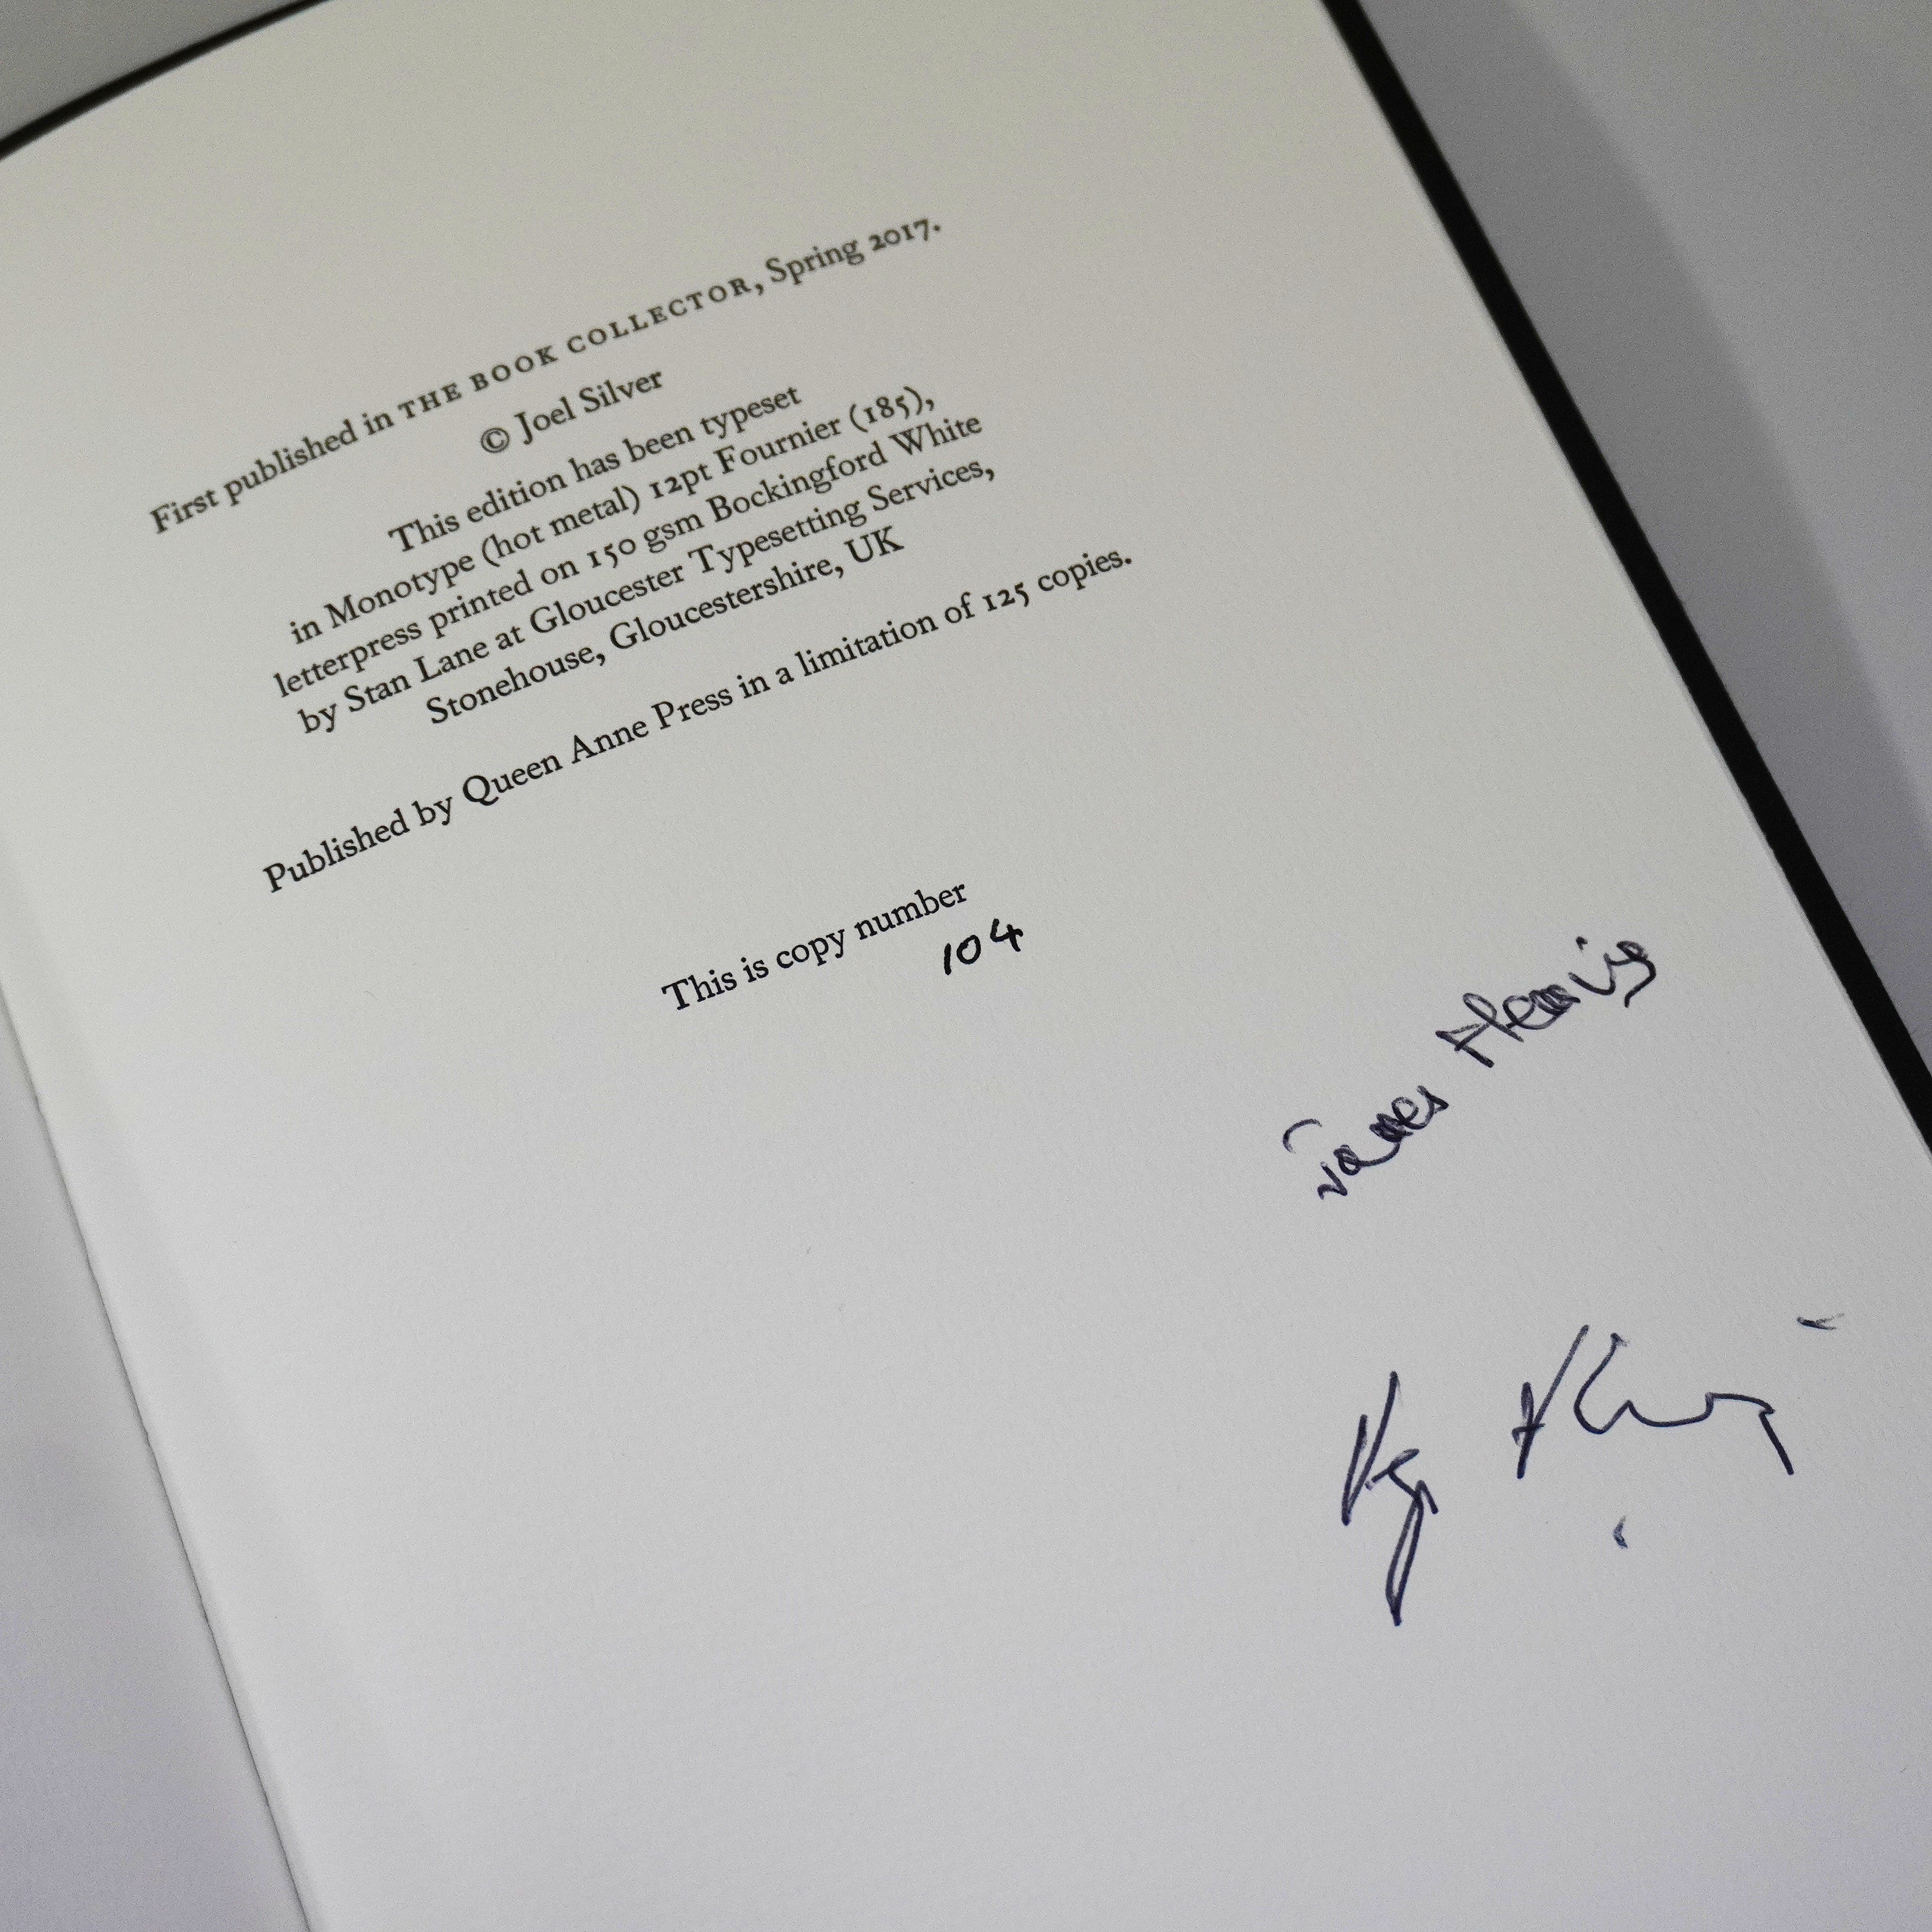 First published in THE BOOK COLLECTOR, Spring 2017.
© Joel Silver
This edition has been typeset
in Monotype (hot metal) 12pt Fournier (185),
letterpress printed on 150 gsm Bockingford White
by Stan Lane at Gloucester Typesetting Services,
Stonehouse, Gloucestershire, UK
Published by Queen Anne Press in a limitation of 125 copies.
This is copy number
104
James Fleming